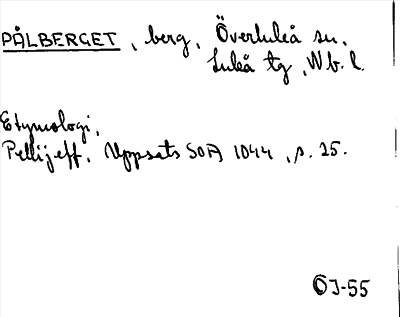 PÅLBERGET, berg, Överluleå sn.
Luleå tg, Nb. l.
Etymologi,
Pellijeff, Uppsats SOFA 1044, s. 25.
ÖJ-55